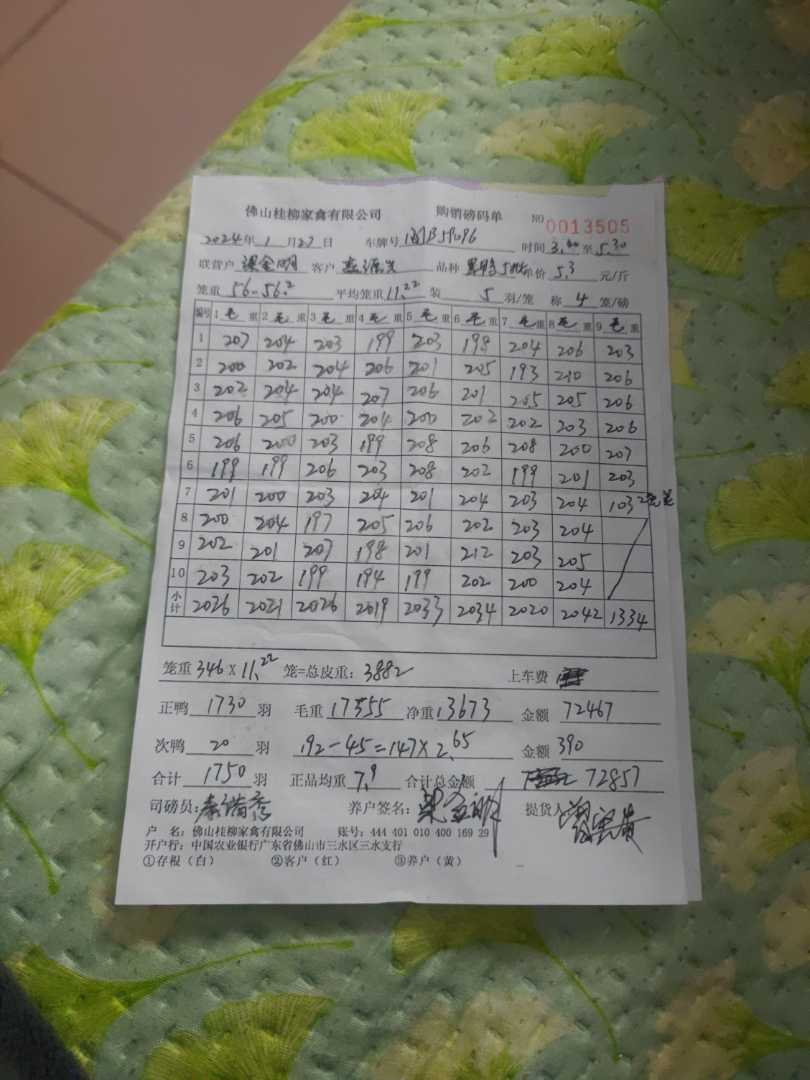 佛山桂柳家禽有限公司 购销磅码单 NO 0013505
2024年1月27日 车牌号 闽B59096 时间3.40至5.30
联营户 梁金明 客户 品种 单价5.3元/斤
笼重56-56.2 平均笼重11.22 装5羽/笼 称4笼/磅
编号 1毛重 2毛重 3毛重 4毛重 5毛重 6毛重 7毛重 8毛重 9毛重
1 207 204 203 199 203 198 204 206 203
2 200 202 204 206 201 205 193 210 206
3 202 204 204 207 206 201 205 205 206
4 206 205 200 204 200 202 202 203 206
5 206 200 203 199 208 206 208 200 207
6 199 199 206 203 208 202 199 201 203
7 201 200 203 204 201 204 203 204 103 2笼
8 200 204 197 205 206 202 203 204
9 202 201 207 198 201 212 203 205
10 203 202 199 194 199 202 200 204
小计 2026 2021 2026 2019 2033 2034 2020 2042 1334
笼重346×11.22笼=总皮重:3882 上车费
正鸭1730羽 毛重17555 净重13673 金额72467
次鸭20羽 192-45=147×2.65 金额390
合计1750羽 正品均重7.9 合计总金额 72857
司磅员: 养户签名:梁金明 提货人
户 名:佛山桂柳家禽有限公司 账号:444 401 010 400 169 29
开户行:中国农业银行广东省佛山市三水区三水支行
①存根(白) ②客户(红) ③养户(黄)